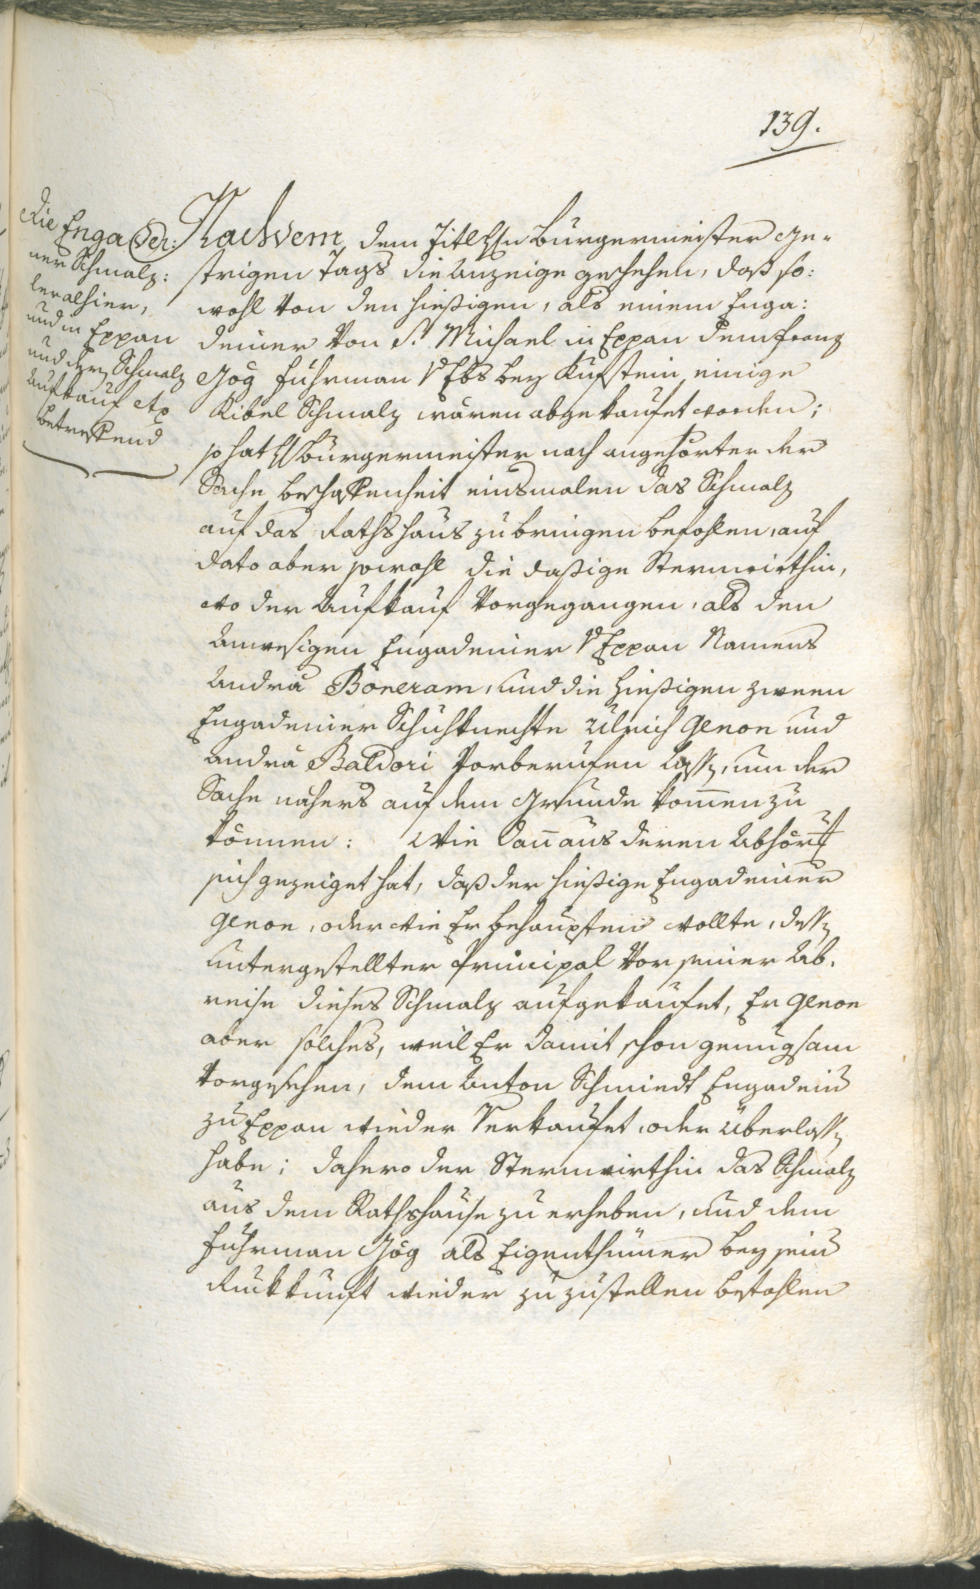 139.
Die Engadei:
ner Schmalz:
ler alhier,
und in Eppan
und dero Schmalz
Aufkauf etc
betreffend
Nachdem dem Titl H: Burgermeister ge-
strigen Tags die Anzeige geschehen, daß so:
wohl von den hießigen, als einem Enga:
deiner von St. Michael in Eppan dem Franz
Jög Fuhrman v Ebs bey Kufstein einige
Kibel Schmalz wären abgekaufet worden;
so hat H: Burgermeister nach angehörter der
Sache beschaffenheit einsmalen das Schmalz
auf das Rathshaus zu bringen befohlen, auf
dato aber sowohl die dasige Sternwirthin,
wo der Aufkauf vorgegangen, als den
anwesigen Engadeiner v Eppan Namens
Andrä Boneram, und die hießigen zween
Engadeiner Schuhknechte Ulrich Genon und
Andrä Baldori vorberufen lassen, um der
Sache nähers auf dem Grunde kommen zu
können: Wie dann aus deren Abhör
sich gezeiget hat, daß der hießige Engadeiner
Genon, oder wie Er behaupten wollte, dessen
untergestellter Principal vor seiner Ab-
reise dieses Schmalz aufgekaufet, Er Genon
aber solches, weil Er damit schon genugsam
vorgesehen, dem Anton Schmiedt Engadein
zu Eppan wieder verkaufet, oder überlassen
habe; dahero der Sternwirthin das Schmalz
aus dem Rathshause zu erheben, und dem
Fuhrman Jög als Eigenthümer bey sein
Ruckkunft wieder zuzustellen befohlen